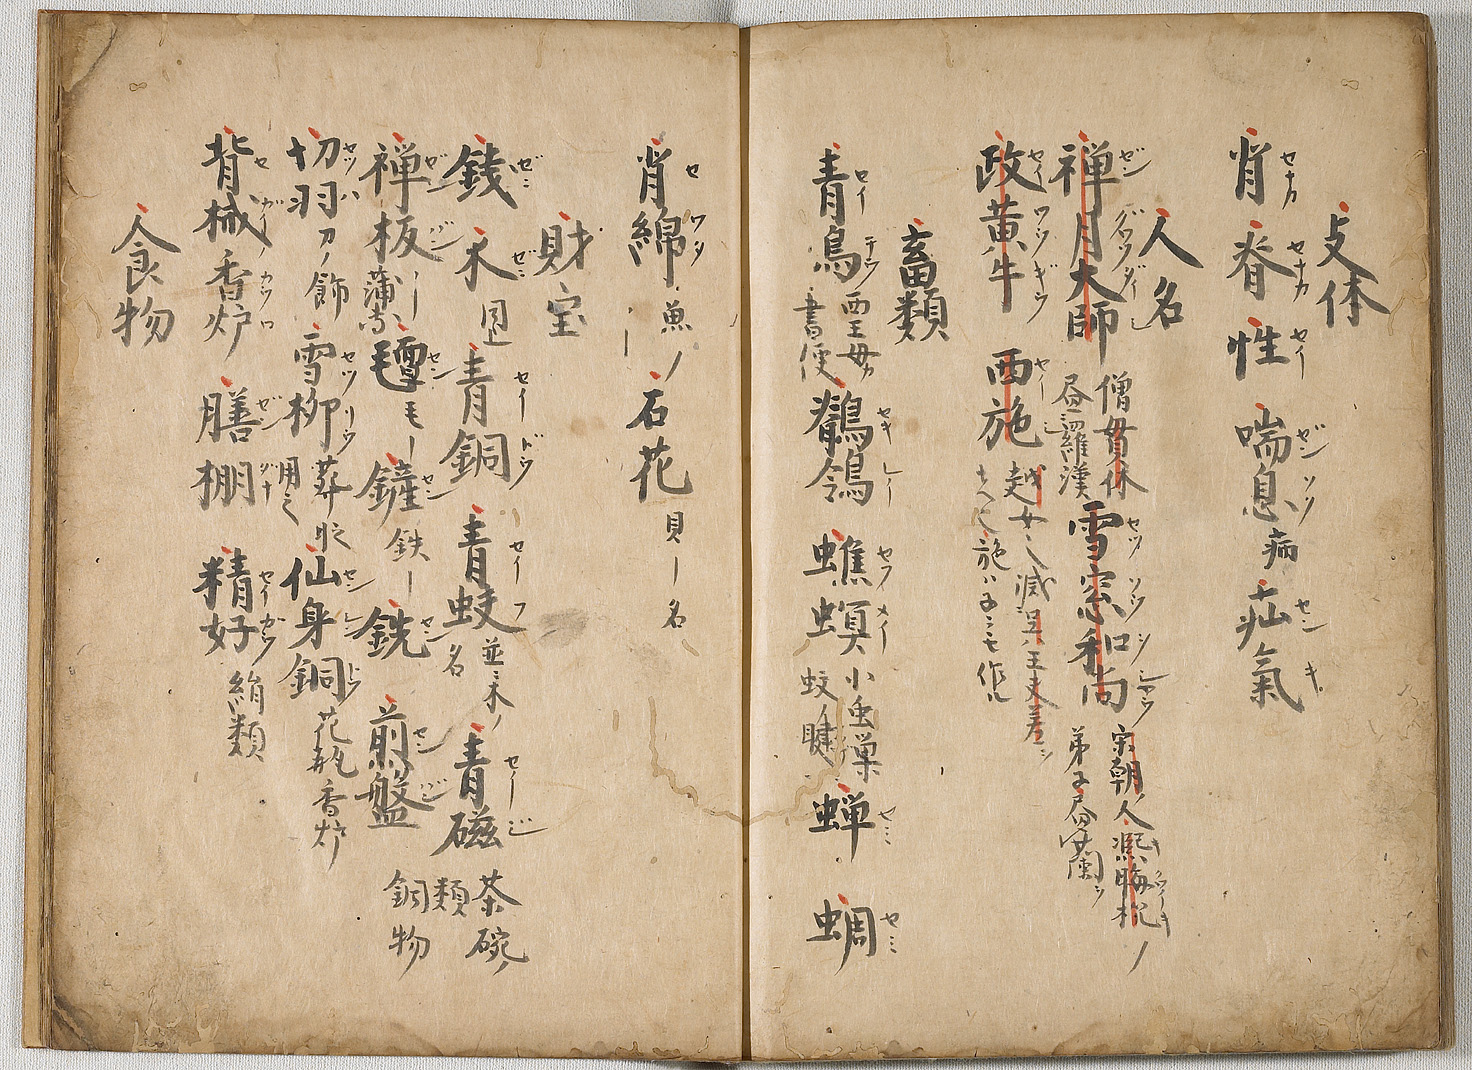 支体
背セナカ 脊セナカ 性セイ 喘息ゼンソク病 疝氣センキ
人名
禅月大師ゼングワツダイシ 僧貫休
画羅漢 雪窓和尚セツソウ 宋朝ノ人
弟子
政黄牛セイワウギウ 西施セイシ 越女
施ハ子ニモ作ル
畜類
青鳥セイテウ 西王母カ
書使 鶺鴒セキレイ 蟭螟セウメイ 小虫巣
蚊ノ睫 蝉セミ 蜩セミ
背綿セワタ 魚ノ 石花 貝ー名
財宝
銭ゼニ 禾ゼニ 同上 青銅セイドウ 青蚨セイフ 並ニ禾ノ
名 青磁セイジ 茶碗ノ
類
禅板ゼンバン 蒲ー 氈セン モー 鏟セン 鉄ー 銑セン 煎盤センバン 銅
物
切羽セツハ 刀ノ飾 雪柳セツリウ 葬ニ
用之 仙身銅センシンドウ 花瓶
香炉
背械香炉 膳棚ゼンダナ 精好セイガウ 絹類
食物